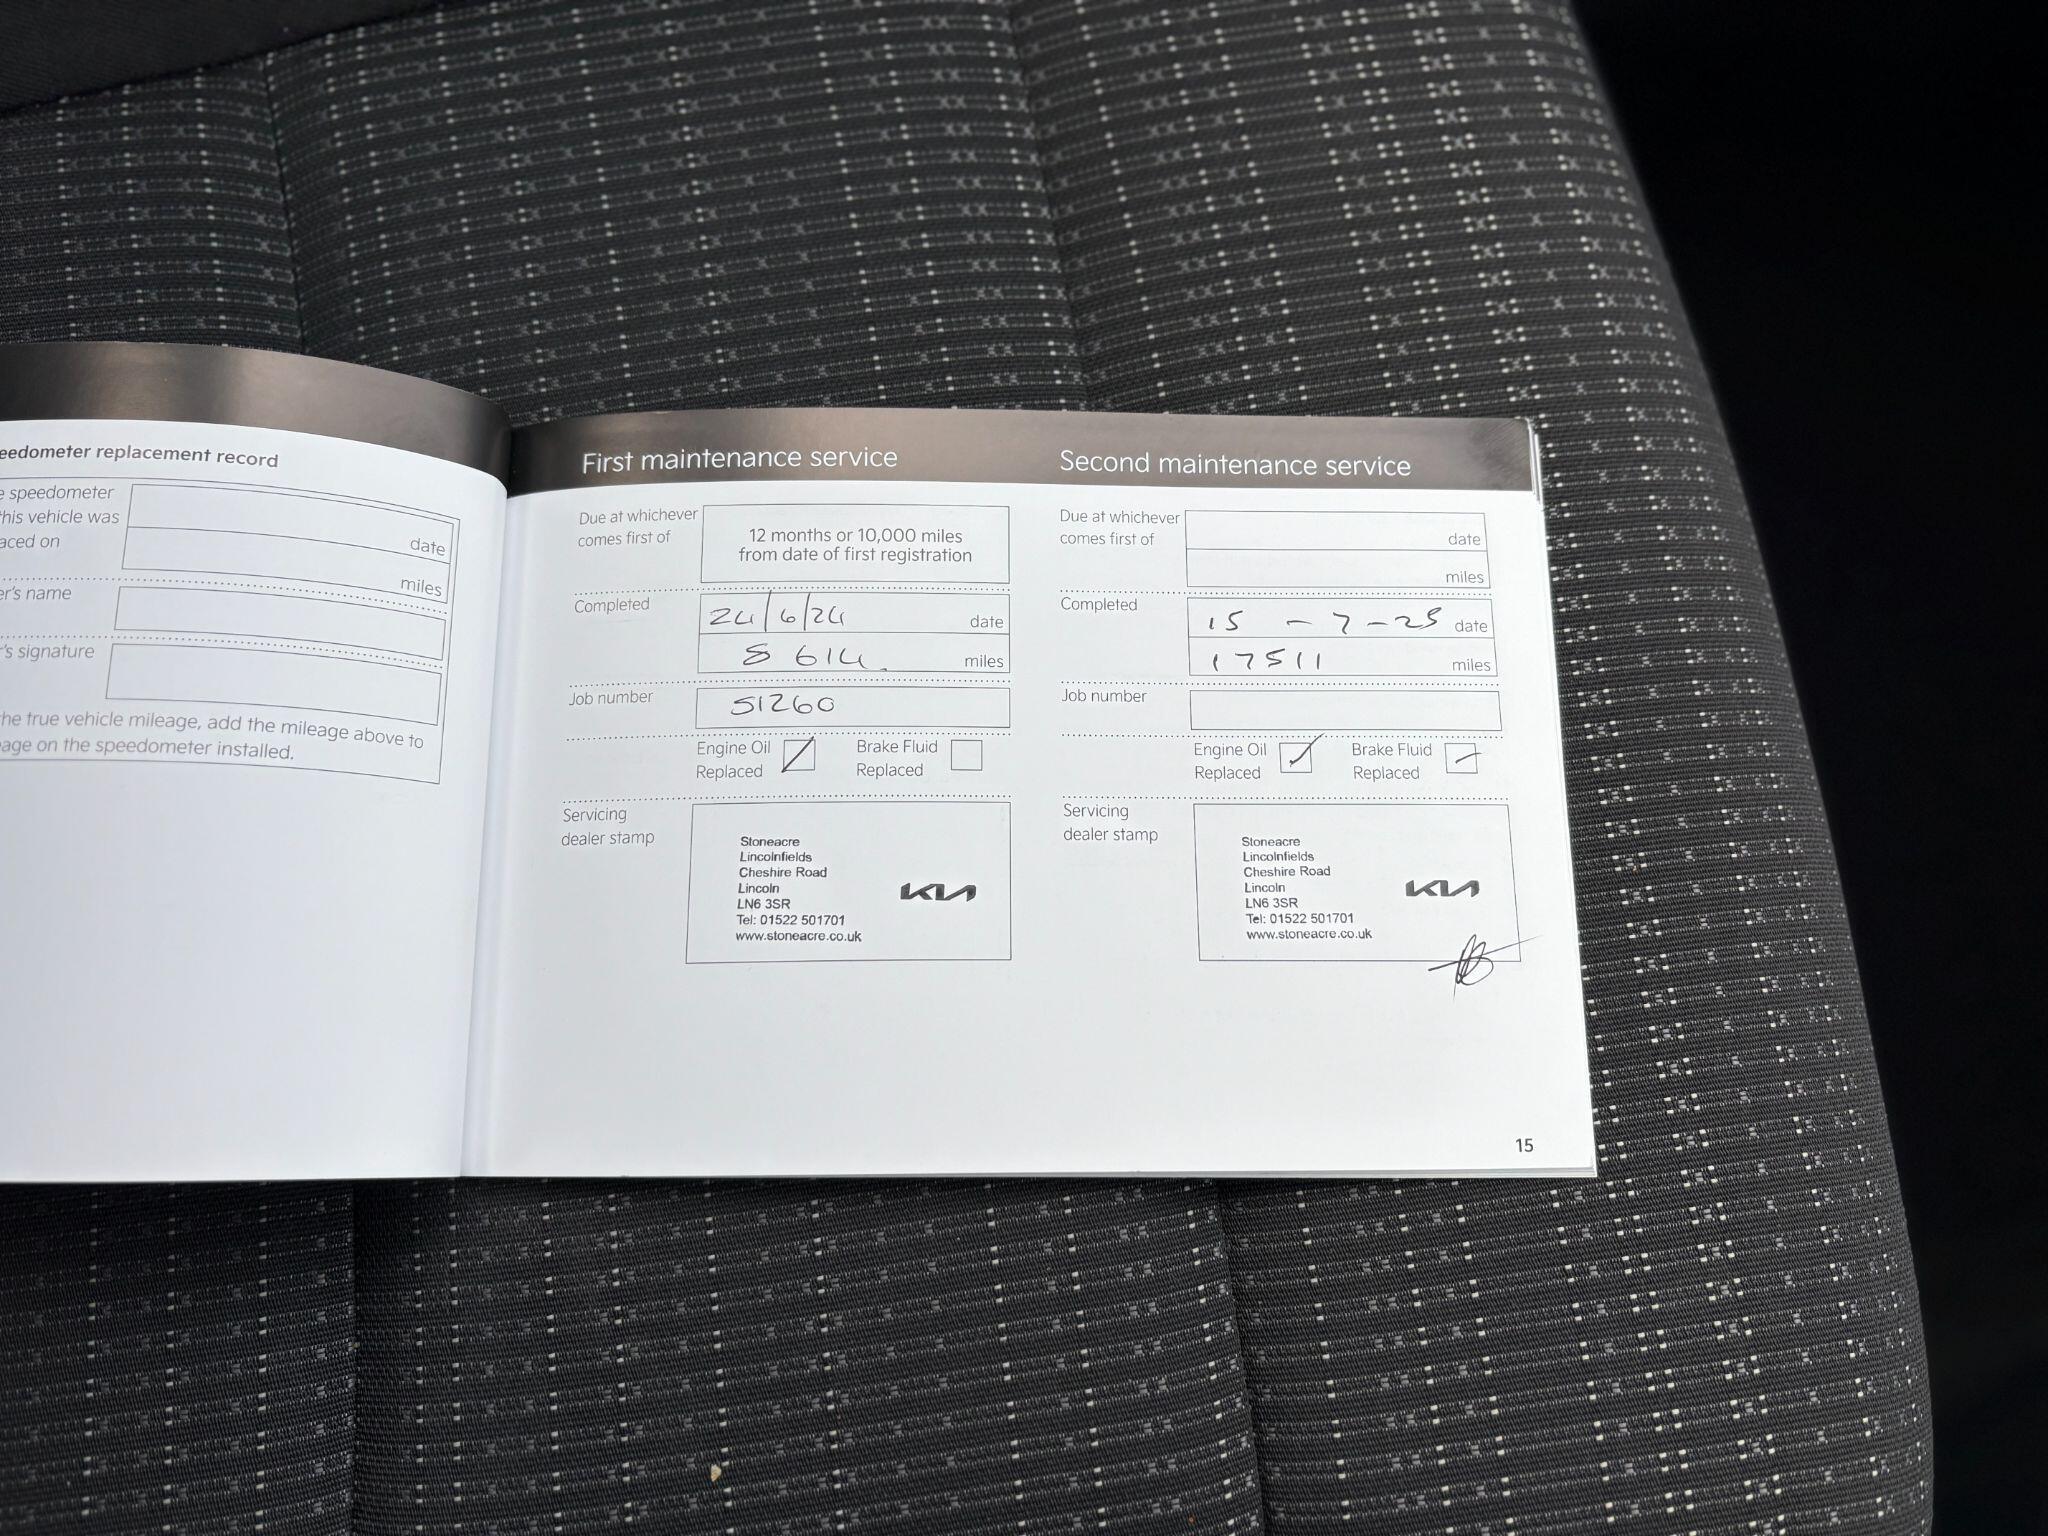 eedometer replacement record
e speedometer
this vehicle was
aced on
date
miles
er's name
's signature
he true vehicle mileage, add the mileage above to
eage on the speedometer installed.
First maintenance service
Due at whichever
comes first of
12 months or 10,000 miles
from date of first registration
Completed
24/6/24 date
8614. miles
Job number
51260
Engine Oil
Replaced
Brake Fluid
Replaced
Servicing
dealer stamp
Stoneacre
Lincolnfields
Cheshire Road
Lincoln
LN6 3SR
Tel: 01522 501701
www.stoneacre.co.uk
KIA
Second maintenance service
Due at whichever
comes first of
date
miles
Completed
15 - 7 - 25 date
17511 miles
Job number
Engine Oil
Replaced
Brake Fluid
Replaced
Servicing
dealer stamp
Stoneacre
Lincolnfields
Cheshire Road
Lincoln
LN6 3SR
Tel: 01522 501701
www.stoneacre.co.uk
KIA
15